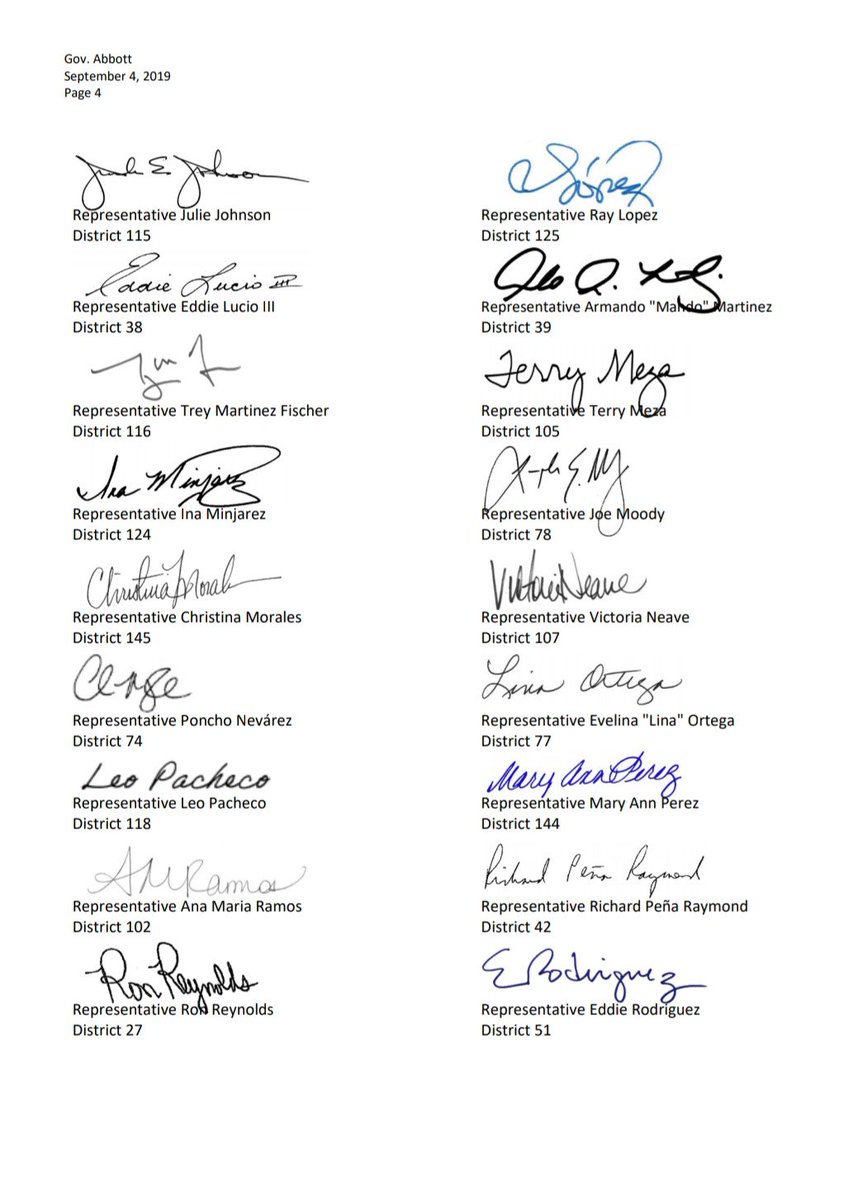 Gov. Abbott
September 4, 2019
Page 4
Julie E Johnson
Representative Julie Johnson
District 115
López
Representative Ray Lopez
District 125
Eddie Lucio III
Representative Eddie Lucio III
District 38
Representative Armando "Mando" Martinez
District 39
Representative Trey Martinez Fischer
District 116
Terry Meza
Representative Terry Meza
District 105
Ina Minjarez
Representative Ina Minjarez
District 124
Representative Joe Moody
District 78
Christina Morales
Representative Christina Morales
District 145
Victoria Neave
Representative Victoria Neave
District 107
Representative Poncho Nevárez
District 74
Lina Ortega
Representative Evelina "Lina" Ortega
District 77
Leo Pacheco
Representative Leo Pacheco
District 118
Mary Ann Perez
Representative Mary Ann Perez
District 144
AMRamos
Representative Ana Maria Ramos
District 102
Richard Peña Raymond
Representative Richard Peña Raymond
District 42
Ron Reynolds
Representative Ron Reynolds
District 27
E Rodriguez
Representative Eddie Rodriguez
District 51